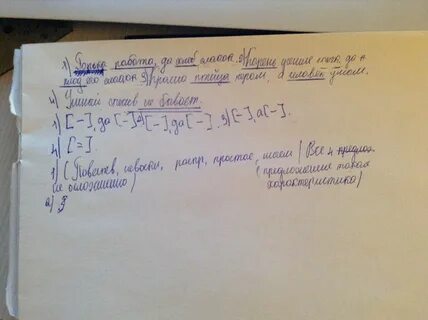 1) Горька работа, да хлеб сладок. 2) Корень учения горек, да
плод его сладок. 3) Красна птица пером, а человек умом.
4) Тишки
не бывает.
1) [-], да [-]. 2) [-], да [-]. 3) [-], а [-].
4) [=].
1) (Повеств, невоскл, распр, простое, (Все 4 предлож
не осложнено) предложения такая
2) характеристика)